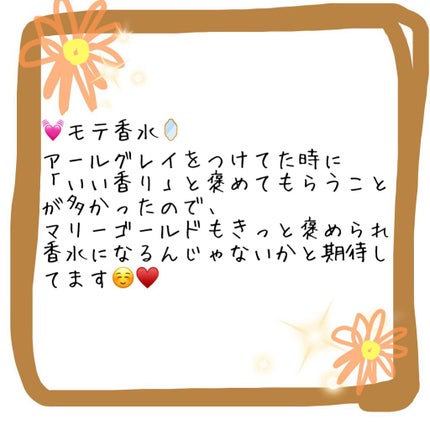 💓モテ香水🪞
アールグレイをつけてた時に
「いい香り」と褒めてもらうこと
が多かったので、
マリーゴールドもきっと褒められ
香水になるんじゃないかと期待し
てます☺️♥️